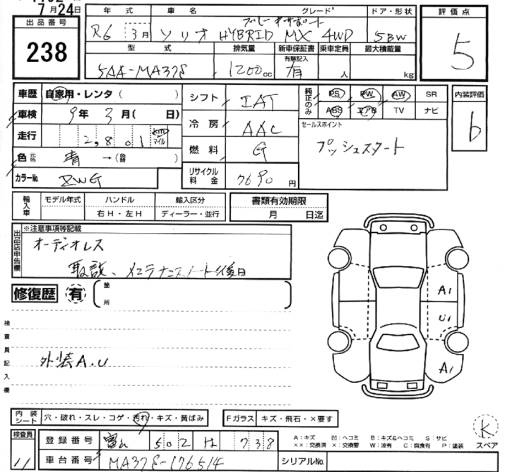 7月24日
出品番号
238
年式 車名 グレード ドア・形状
R6 3月 ソリオ HYBRID MX 4WD 5BW
型式 排気量 新車保証書 有無記入 乗車定員 最大積載量
5AA-MA37S 1200cc 有 人 kg
評価点
5
車歴 自家用・レンタ( )
車検 9年3月( 日)
走行 2,801
色 青 →(替 )
カラーNo. ZWG
シフト IAT
冷房 AAC
燃料 G
リサイクル料金 7690円
純正のみ PS PW AW SR
ABS エアB TV ナビ
セールスポイント
プッシュスタート
内装評価
b
輸入車 モデル年式 ハンドル 右H・左H 輸入区分 ディーラー・並行
書類有効期限
月 日迄
出品店申告欄 ※注意事項等記載
オーディオレス
取説、メンテナンスノート後日
修復歴 有 箇所
A1
U1
A1
検査員記入欄
外装A.U
内装シート 穴・破れ・スレ・コゲ・汚れ・キズ・黄ばみ
Fガラス キズ・飛石・×要す
検査員
11
登録番号 富山 502 は 738
車台番号 MA37S-176514
シリアルNo.
A:キズ U:ヘコミ B:キズ&ヘコミ S:サビ
××:交換済 X:交換要 W:波有 C:腐食有 P:塗装
K
スペア